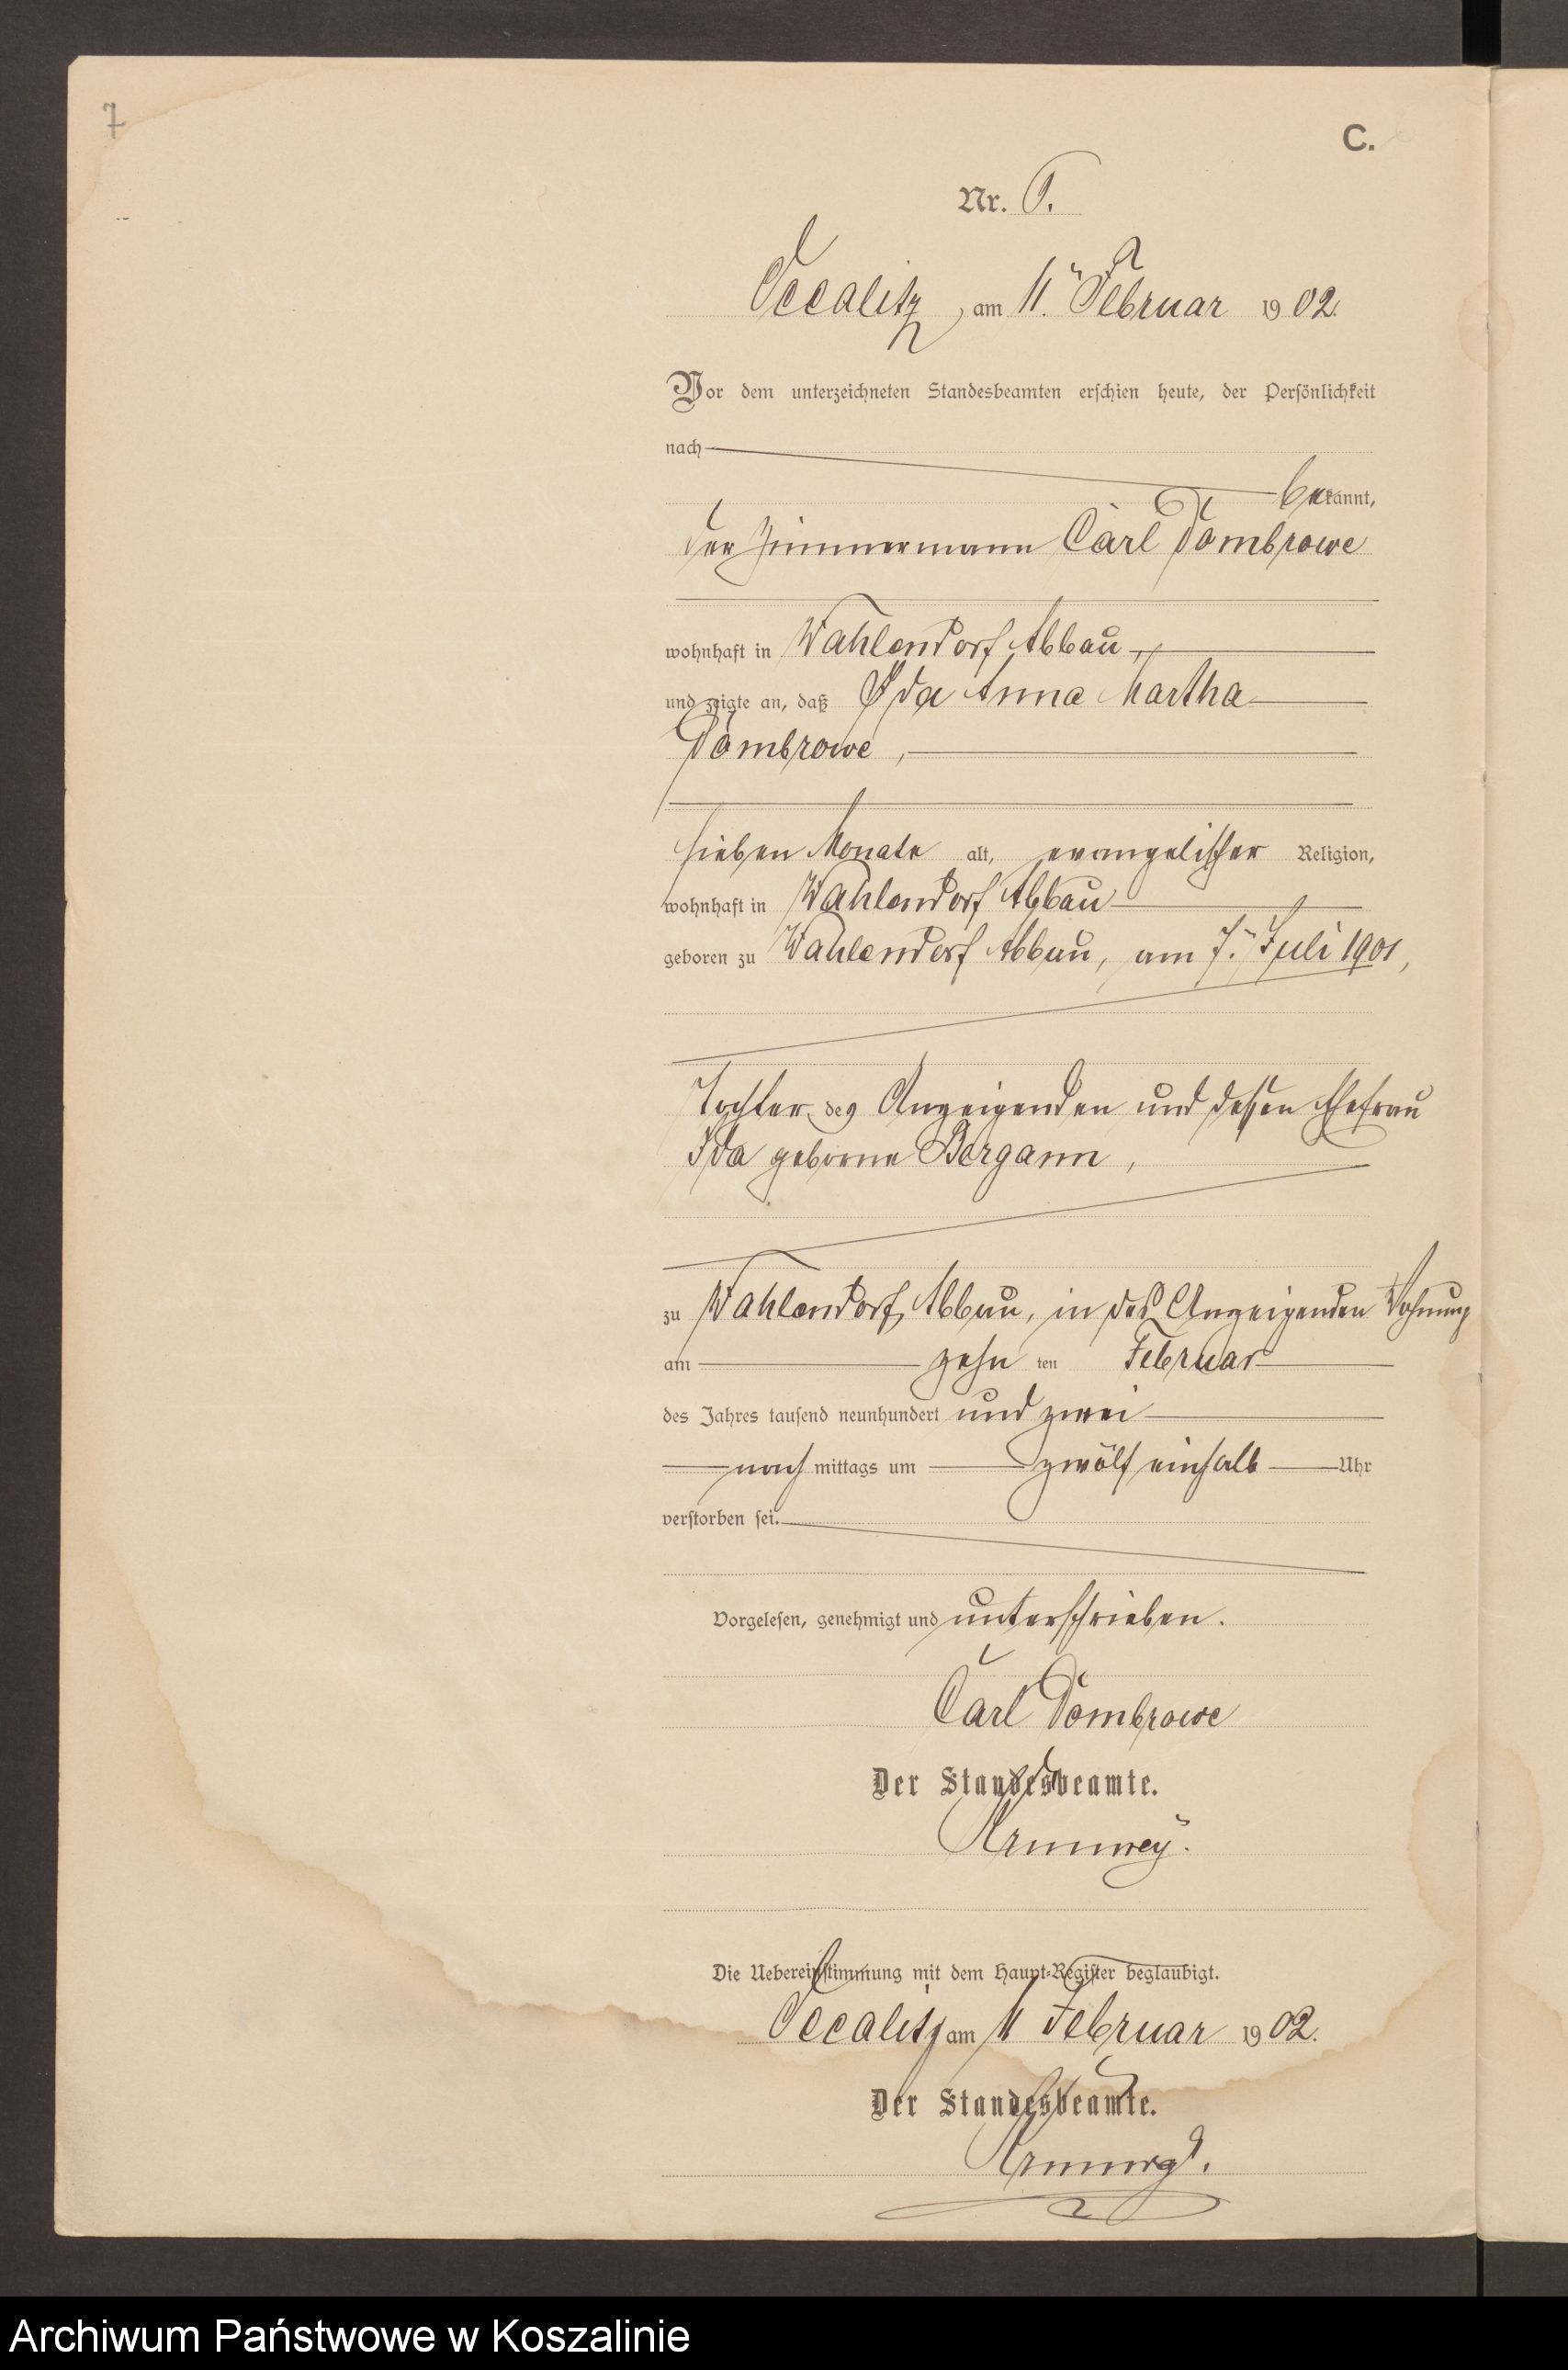 7
C.
Nr.
am 11. Februar 1902.
Vor dem unterzeichneten Standesbeamten erschien heute, der Persönlichkeit
nach
bekannt,
der Zimmermann Carl Dombrowe
wohnhaft in Wahlendorf Abbau,
und zeigte an, daß Ida Anna Martha
Dombrowe,
sieben Monate alt, evangelischer Religion,
wohnhaft in Wahlendorf Abbau
geboren zu Wahlendorf Abbau, am 7. Juli 1901,
Tochter des Anzeigenden und dessen Ehefrau
Ida geborne Bergann,
zu Wahlendorf Abbau, in des Anzeigenden Wohnung
am zehn ten Februar
des Jahres tausend neunhundert und zwei
nachmittags um zwölf einhalb Uhr
verstorben sei.
Vorgelesen, genehmigt und unterschrieben.
Carl Dombrowe
Der Standesbeamte.
Die Uebereinstimmung mit dem Haupt-Register beglaubigt.
am 11 Februar 1902.
Der Standesbeamte.
Archiwum Państwowe w Koszalinie